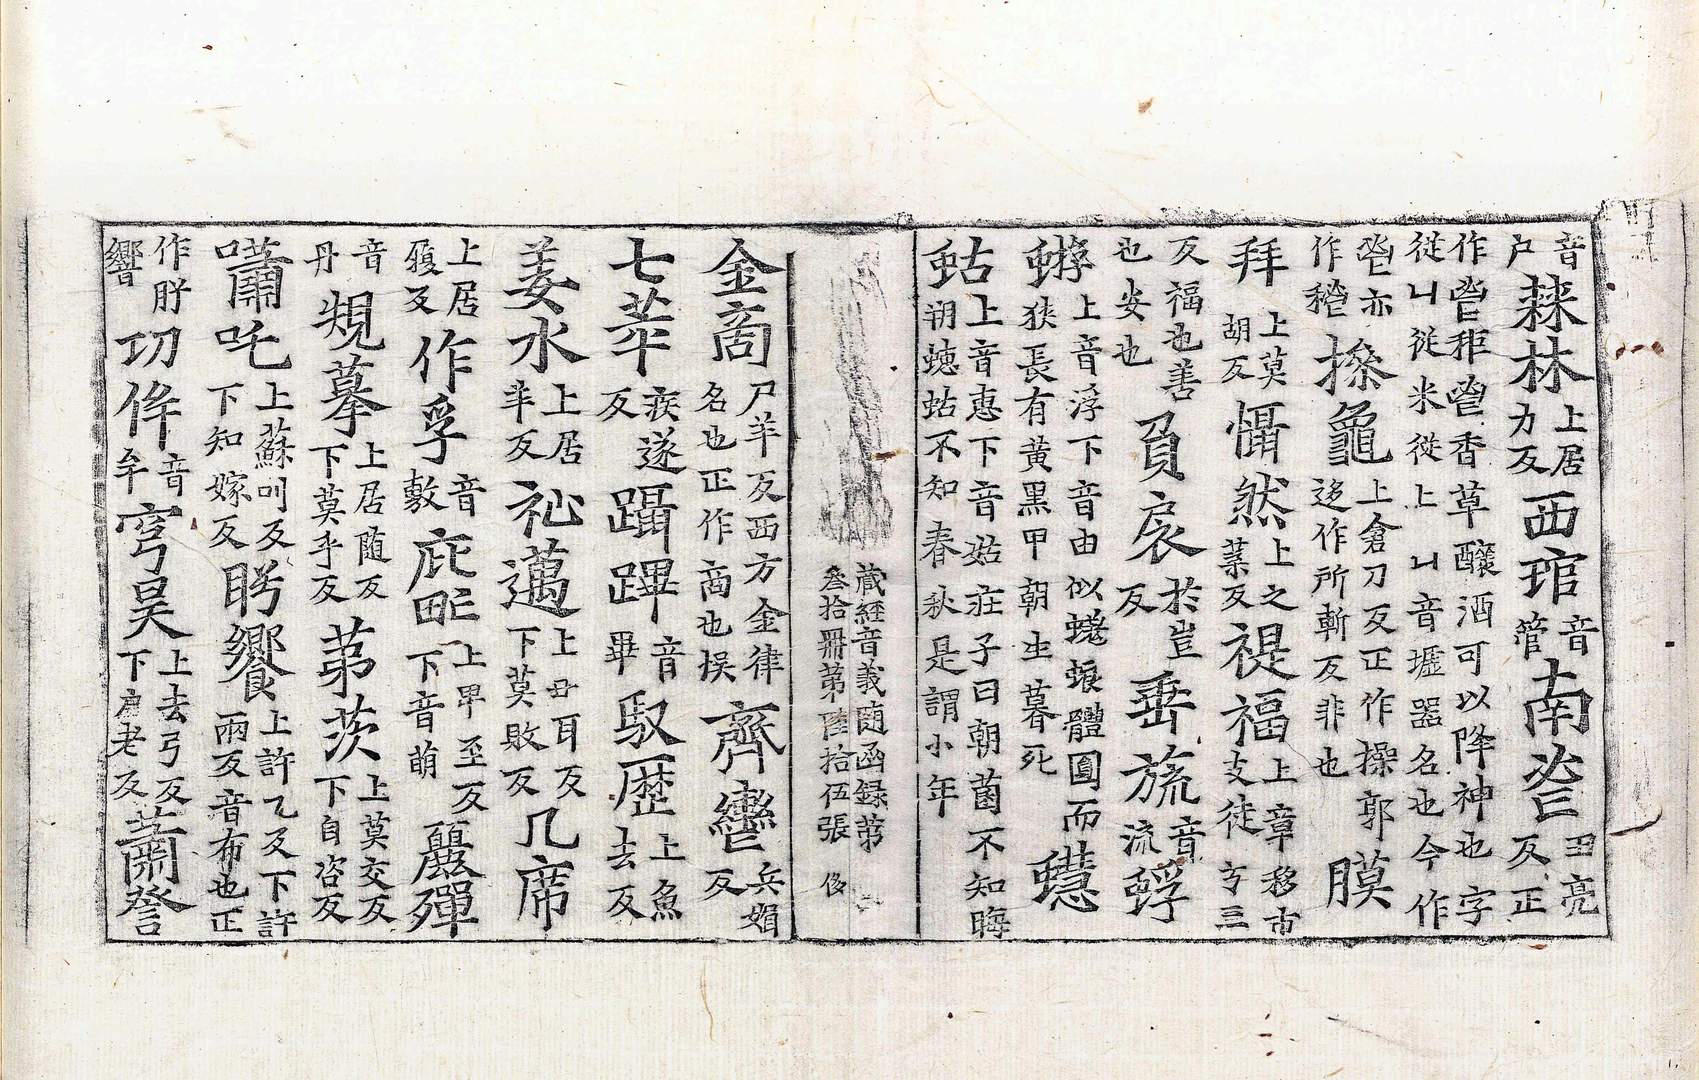 音户䔩林上居力反西琯音管南𨡓丑亮反正
作鬯秬鬯香草釀酒可以降神也字從凵從米從匕凵音壚器名也今作
鬯亦作𥡳操龜上倉刀反正作操郭迻作所斬反非也膜
拜上莫胡反懾然上之葉反禔福上章移市支徒兮三
反福也善也安也負扆於豈反垂旒音流蜉
蝣上音浮下音由似蜣蜋體圓而狹長有黃黑甲朝生暮死蟪
蛄上音惠下音姑莊子曰朝菌不知晦朔蟪蛄不知春秋是謂小年
藏經音義随函録苐
叁拾冊苐陸拾伍張 侈
金啇尸羊反西方金律名也正作商也悮齊轡兵媚反
七萃疾遂反躡蹕音畢馭歷上魚去反
姜水上居羊反祉邁上丑耳反下莫敗反几席
上居履反作孚音敷庇甿上卑至反下音萌嚴殫
音丹規摹上居随反下莫乎反茅茨上莫交反下自咨反
嘯吒上蘇叫反下知嫁反肹饗上許乙反下許兩反音布也正
作肸響切侔音牟穹昊上去弓反下户老反蕭詧